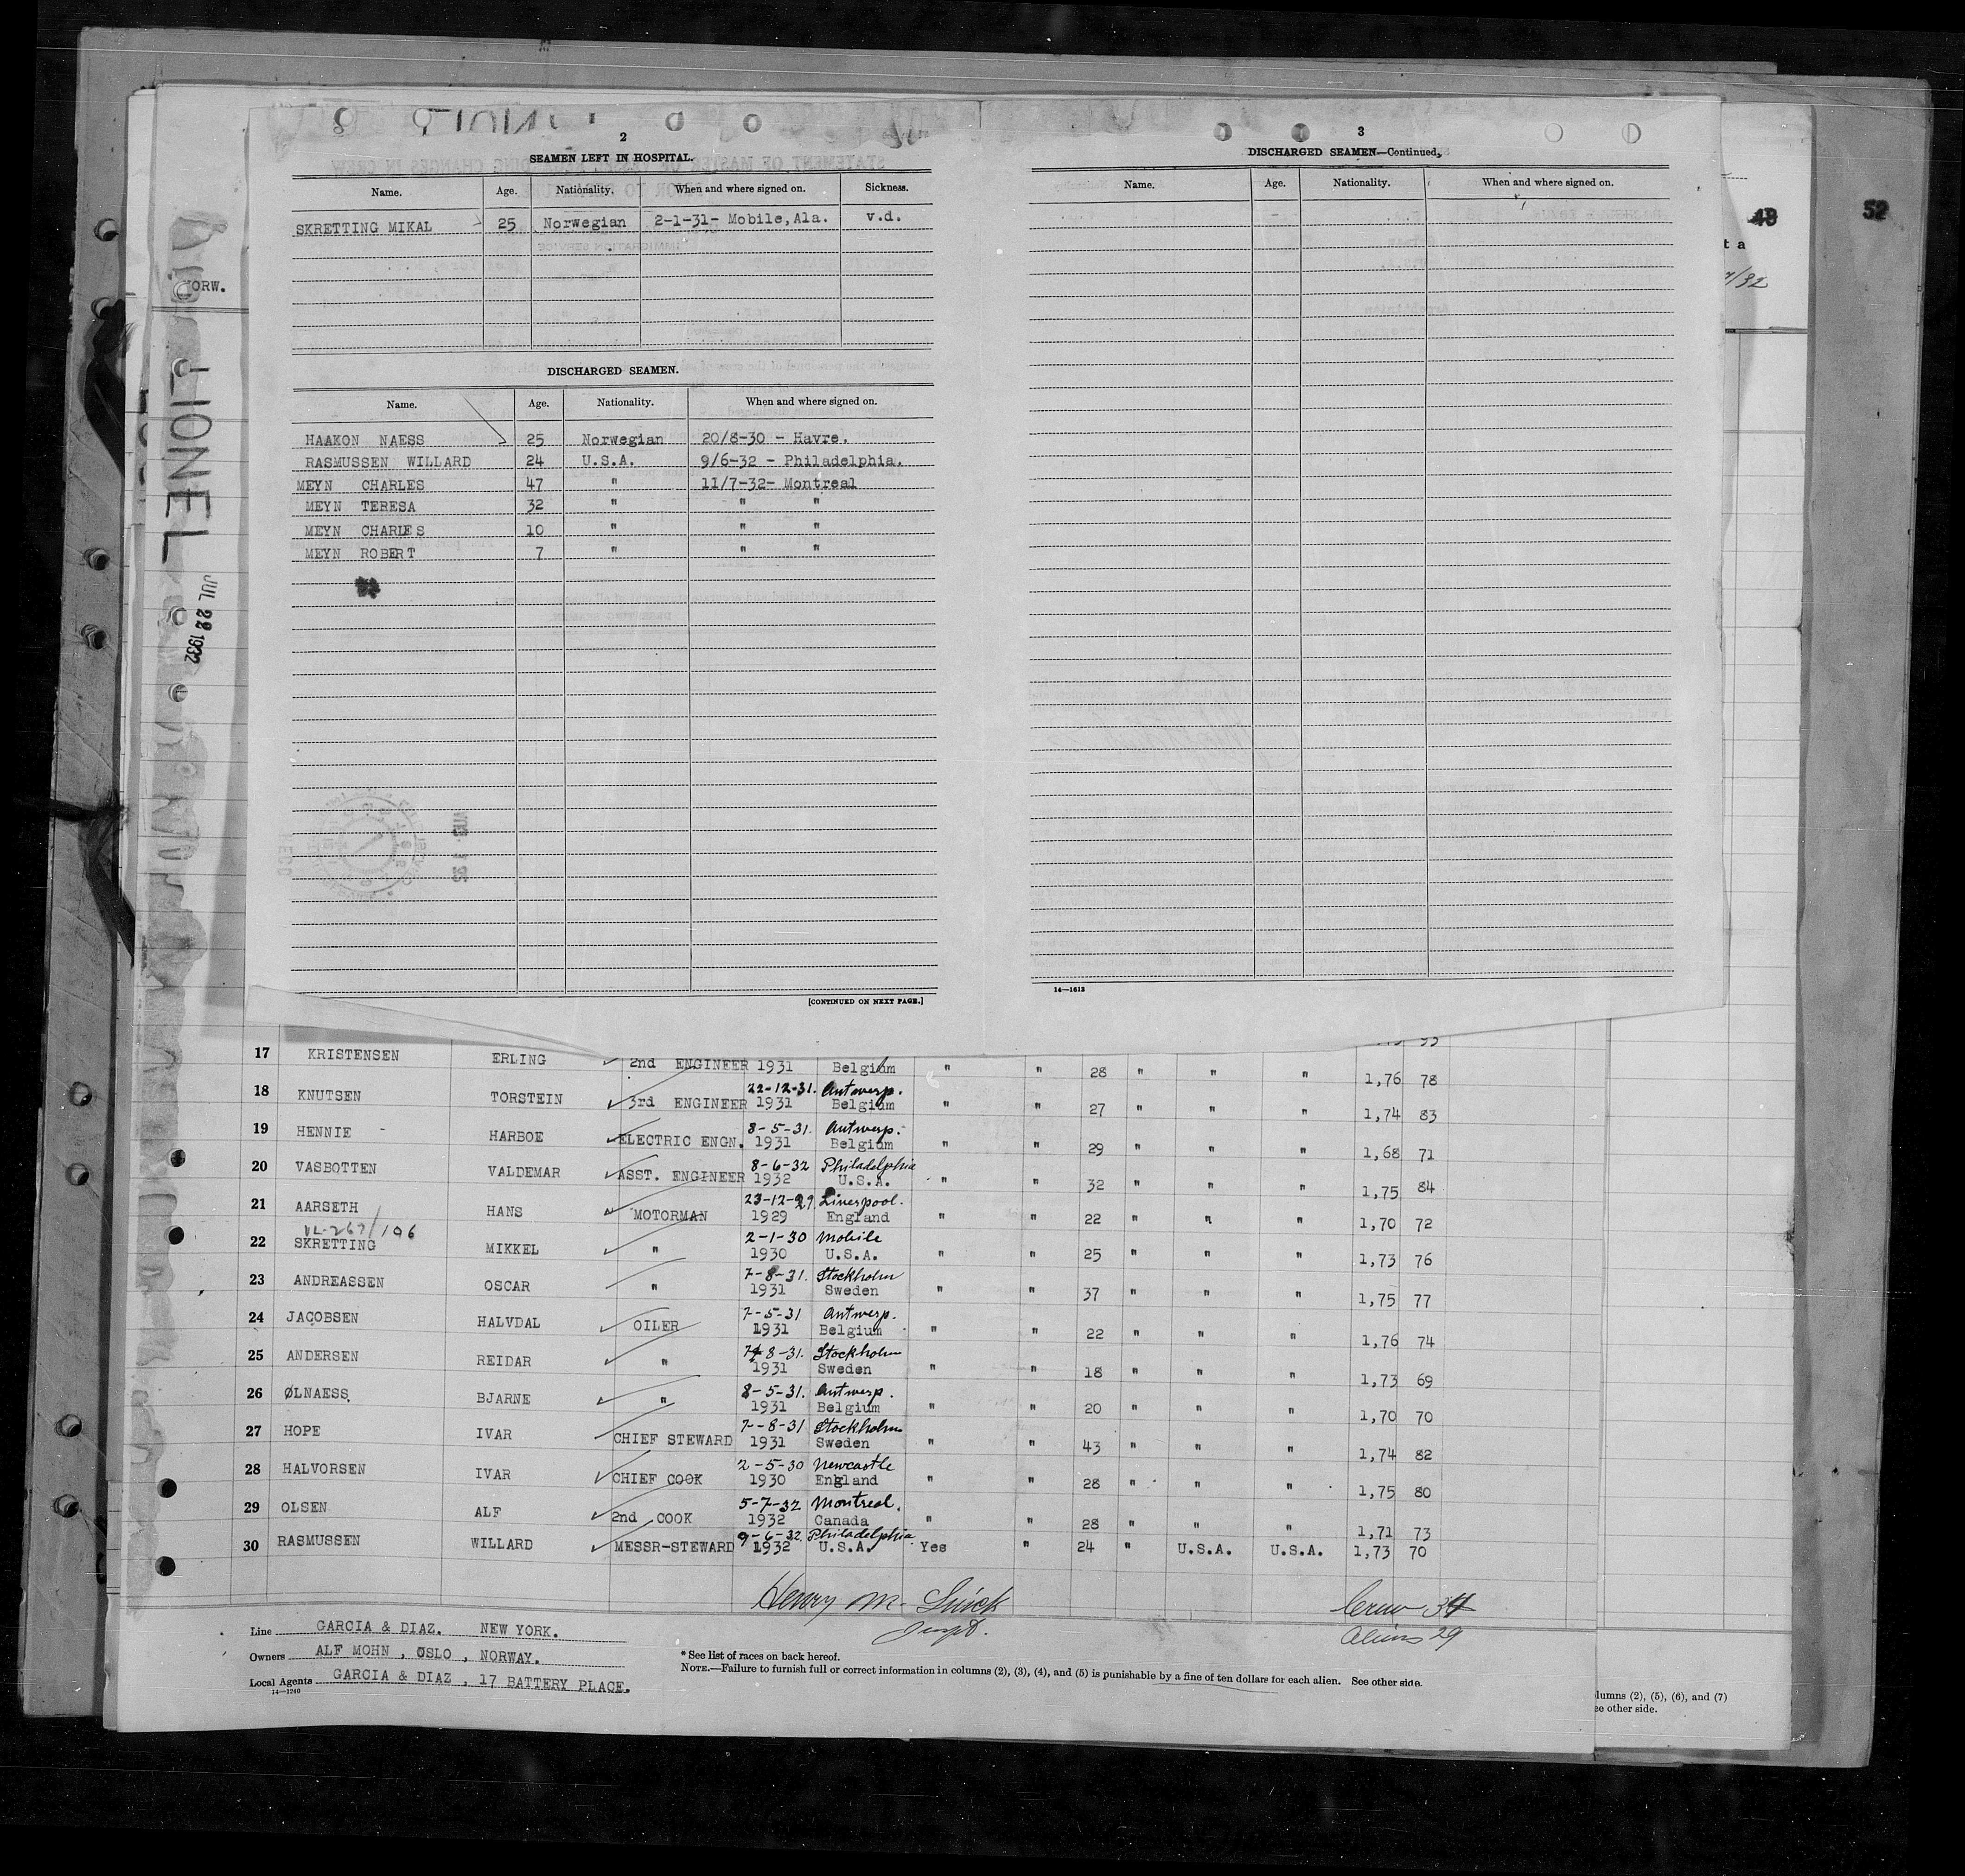 2
SEAMEN LEFT IN HOSPITAL.
Name. Age. Nationality. When and where signed on. Sickness.
SKRETTING MIKAL 25 Norwegian 2-1-31- Mobile, Ala. v.d.
DISCHARGED SEAMEN.
Name. Age. Nationality. When and where signed on.
HAAKON NAESS 25 Norwegian 20/8-30 - Havre.
RASMUSSEN WILLARD 24 U.S.A. 9/6-32 - Philadelphia.
MEYN CHARLES 47 " 11/7-32- Montreal
MEYN TERESA 32 " " "
MEYN CHARLES 10 " " "
MEYN ROBERT 7 " " "
[CONTINUED ON NEXT PAGE.]
3
DISCHARGED SEAMEN—Continued.
Name. Age. Nationality. When and where signed on.
14—1613
NORW.
LIONEL
JUL 22 1932
49
52
ta
/32
17 KRISTENSEN ERLING 2nd ENGINEER 1931 Belgium " " 28 " " " 1,76 78
18 KNUTSEN TORSTEIN 3rd ENGINEER 22-12-31. 1931 Antwerp. Belgium " " 27 " " " 1,74 83
19 HENNIE - HARBOE ELECTRIC ENGN. 8-5-31. 1931 Antwerp. Belgium " " 29 " " " 1,68 71
20 VASBOTTEN VALDEMAR ASST. ENGINEER 8-6-32 1932 Philadelphia U.S.A. " " 32 " " " 1,75 84
21 AARSETH HANS MOTORMAN 23-12-29. 1929 Liverpool. England " " 22 " " " 1,70 72
VL-267/106
22 SKRETTING MIKKEL " 2-1-30 1930 Mobile U.S.A. " " 25 " " " 1,73 76
23 ANDREASSEN OSCAR " 7-8-31. 1931 Stockholm Sweden " " 37 " " " 1,75 77
24 JACOBSEN HALVDAL OILER 7-5-31 1931 Antwerp. Belgium " " 22 " " " 1,76 74
25 ANDERSEN REIDAR " 7-8-31. 1931 Stockholm Sweden " " 18 " " " 1,73 69
26 ØLNAESS BJARNE " 8-5-31. 1931 Antwerp. Belgium " " 20 " " " 1,70 70
27 HOPE IVAR CHIEF STEWARD 7-8-31 1931 Stockholm Sweden " " 43 " " " 1,74 82
28 HALVORSEN IVAR CHIEF COOK 2-5-30 1930 Newcastle England " " 28 " " " 1,75 80
29 OLSEN ALF 2nd COOK 5-7-32 1932 Montreal. Canada " " 28 " " " 1,71 73
30 RASMUSSEN WILLARD MESSR-STEWARD 9-6-32. 1932 Philadelphia U.S.A. Yes " 24 " U.S.A. U.S.A. 1,73 70
Henry M.
Crew 34
Aliens 29
Line GARCIA & DIAZ. NEW YORK.
Owners ALF MOHN, OSLO, NORWAY.
Local Agents GARCIA & DIAZ, 17 BATTERY PLACE.
14—1240
* See list of races on back hereof.
NOTE.—Failure to furnish full or correct information in columns (2), (3), (4), and (5) is punishable by a fine of ten dollars for each alien. See other side.
lumns (2), (5), (6), and (7)
ee other side.